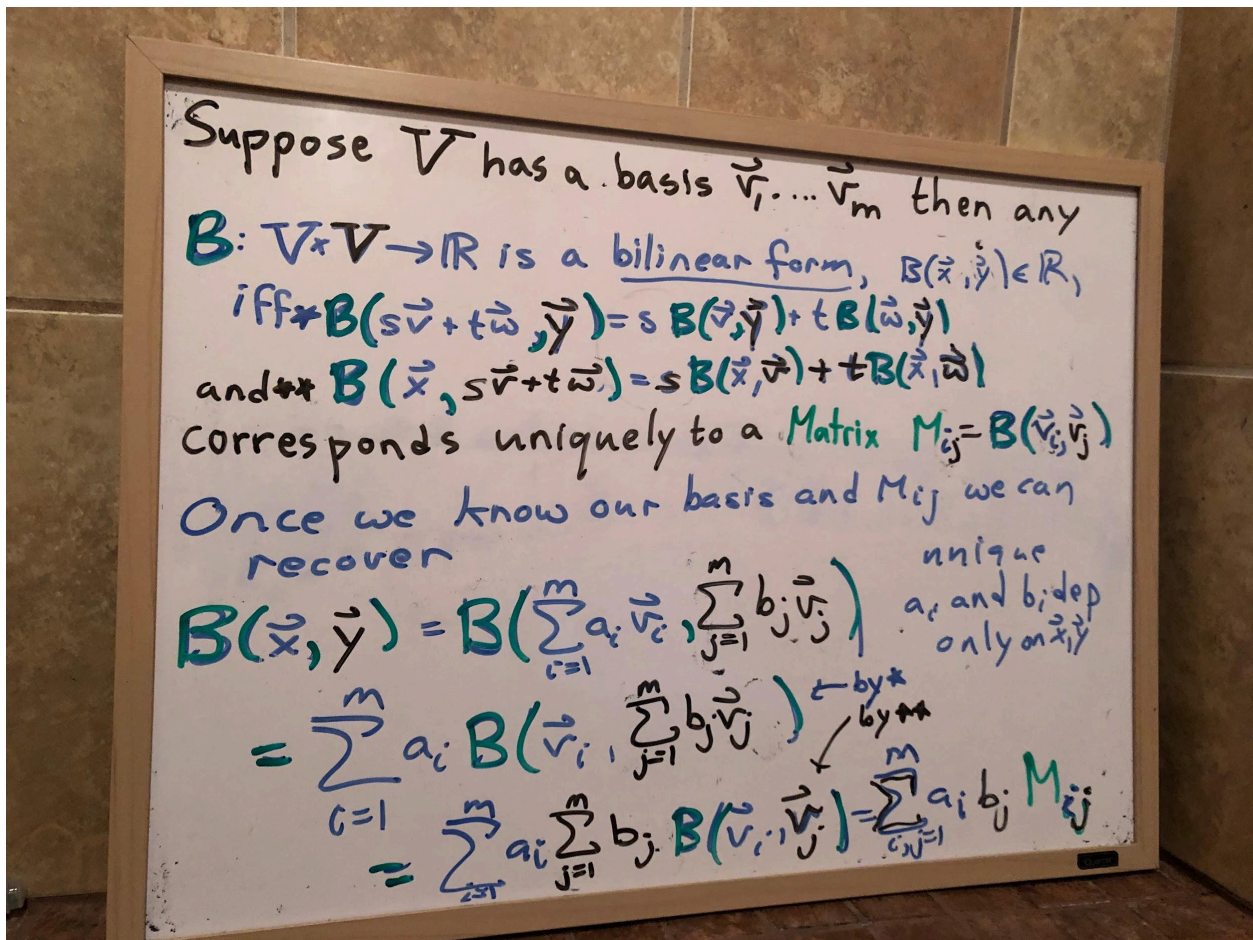 Suppose V has a basis v⃗₁, ... v⃗ₘ then any
B: V×V → ℝ is a bilinear form, B(x⃗, y⃗) ∈ ℝ,
iff* B(sv⃗ + tw⃗, y⃗) = s B(v⃗, y⃗) + t B(w⃗, y⃗)
and** B(x⃗, sv⃗ + tw⃗) = s B(x⃗, v⃗) + t B(x⃗, w⃗)
corresponds uniquely to a Matrix Mᵢⱼ = B(v⃗ᵢ, v⃗ⱼ)
Once we know our basis and Mᵢⱼ we can
recover
B(x⃗, y⃗) = B(∑ᵢ₌₁ᵐ aᵢ v⃗ᵢ, ∑ⱼ₌₁ᵐ bⱼ v⃗ⱼ)
unique
aᵢ and bᵢ dep
only on x⃗, y⃗
= ∑ᵢ₌₁ᵐ aᵢ B(v⃗ᵢ, ∑ⱼ₌₁ᵐ bⱼ v⃗ⱼ) ← by*
by**
= ∑ᵢ₌₁ᵐ aᵢ ∑ⱼ₌₁ᵐ bⱼ B(v⃗ᵢ, v⃗ⱼ) = ∑ᵢ,ⱼ₌₁ᵐ aᵢ bⱼ Mᵢⱼ